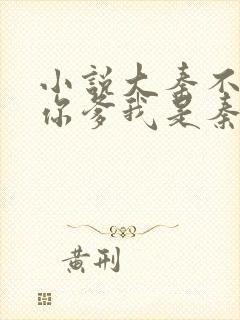 小说大秦不
你爹我是秦
黄刑